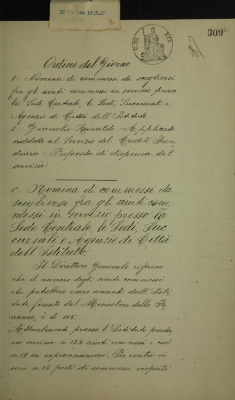 309
Ordine del Giorno
1- Nomina di commessi da scegliersi
fra gli aiuti commessi in servizio presso
la Sede Centrale, le Sedi, Succursali e
Agenzie di Città dell'Istituto
2- Rinaldo - Applicato
addetto al Servizio del Credito Fon
diario - Proposta di dispensa dal
servizio
1- Nomina di commessi da
scegliersi fra gli aiuti com
messi in servizio presso la
Sede Centrale, le Sedi, Suc
cursali e Agenzie di Città
dell'Istituto
Il Direttore Generale riferisce
che il numero degli aiuti commessi
che potrebbero essere assunti dall'Isti
tuto fissato dal Ministero delle Fi
nanze, è di 105.
Attualmente presso l'Istituto presta
no servizio n 124 aiuti commessi e cioè
n 19 in soprannumero. Per contro vi
sono n 16 posti di commessi scoperti